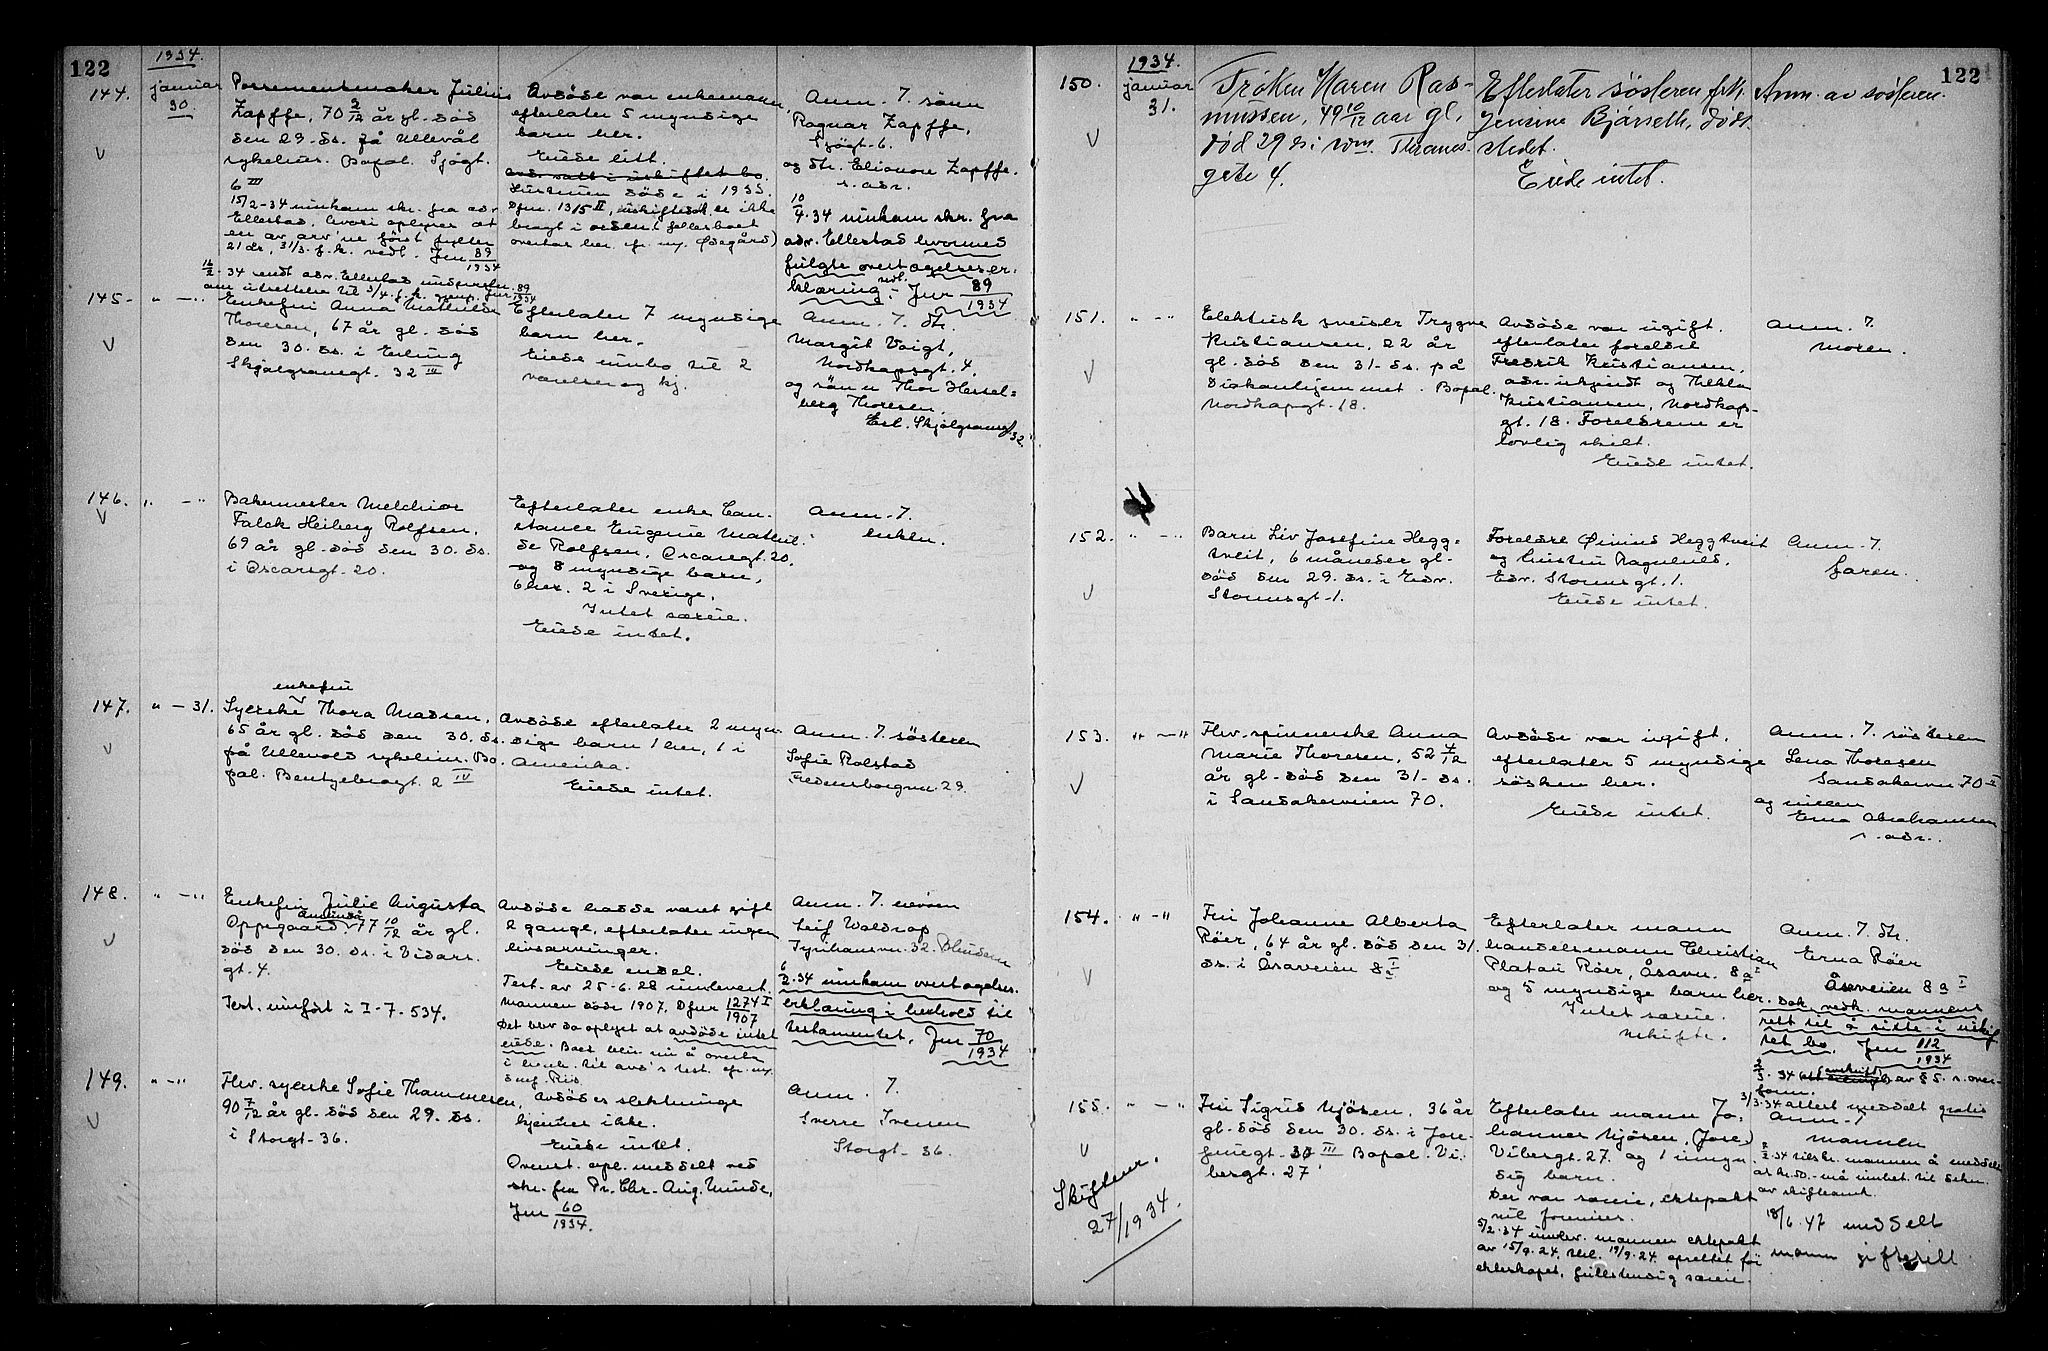 122
1934.
144.
januar
30.
Possementmaker Julius
Zapffe, 70 2/12 år gl. död
den 29. ds. på Ullevål
sykehus. Bopæl. Sjögt.
6 III
15/2-34 innkom skr. fra adv.
Ellestad, hvori oplyses at
en av arv'ne først fyller
21 år, 31/3. f. k. vedl. Jnr 89/1934
16/2-34 sendt adv. Ellestad
Avdöde var enkemann,
efterlater 5 myndige
barn her.
Eiede litt.
avd. satt i uskiftet bo.
Hustruen döde i 1933.
Dfnr. 1315 II, uskiftesök. er ikke
bragt i orden
overtar her. cfr. ny. Ödegård)
Anm. 7. sönn
Ragnar Zapffe,
Sjögt. 6.
og dtr. Elionore Zapffe.
s. adr.
10/4.34 innkom skr. fra
adv. Ellestad hvormed
fulgte overtagelseser-
klæring. vedl. Jnr 89/1934
145.
" - "
Enkefru Anna Mathilde
Thoresen, 67 år gl. död
den 30. ds. i Erling
Skjalgsonsgt. 32 III
Efterlater 7 myndige
barn her.
Eiede innbo til 2
værelser og kj.
Anm. 7. dtr.
Margit Voigt,
Nordkapsgt. 4.
og sönn Thor Hessel=
berg Thoresen.
Erl. Skjalgsonsgt. 32.
146.
" - "
Bakermester Melchior
Falck Heiberg Rolfsen,
69 år gl. död den 30. ds.
i Oscarsgt. 20.
Efterlater enke Con-
stance Eugenie Mathil-
de Rolfsen, Oscarsgt. 20.
og 8 myndige barn,
6 her. 2 i Sverige.
Intet særeie.
Eiede intet.
Anm. 7.
enken.
147.
" - 31.
enkefru
Syerske Thora Madsen,
65 år gl. död den 30. ds.
på Ullevold sykehus. Bo-
pæl. Bentsebrogt. 2 IV
Avdöde efterlater 2 myn-
dige barn 1 her, 1 i
Amerika.
Eiede intet.
Anm. 7. søsteren
Sofie Rolstad
Fredensborgvn. 29.
148.
" - "
Enkefru Julie Augusta
Oppegaard, 77 10/12 år gl.
död den 30. ds. i Vidars-
gt. 4.
Test. innført i I-7-534.
Avdöde hadde været gift
2 gange, efterlater ingen
livsarvinger.
Eiede endel.
Test. av 25-6.28 innlevert.
Mannen döde 1907. Dfnr 1274 I/1907
Det blev da oplyst at avdöde intet
eiede. Boet blir nu å overta
i henh. til avd's test. cfr. ny.
Anm. 7. nevöen
Leif Waldrop
Tyrihansvn. 32.
6/2.34 innkom overtagelses-
erklæring i henhold til
testamentet. Jnr 70/1934
149.
" - "
Fhv. syerske Sofie Thommesen,
90 7/12 år gl. död den 29. ds.
i Storgt. 36.
Avdödes slektninge
kjennes ikke.
Eiede intet.
Overf. opl. meddelt ved
skr. fra Pr. Chr. Aug. Munde,
Jnr 60/1934.
Anm. 7.
Sverre Svensen
Storgt. 36.
122
1934.
150.
januar
31.
Frøken Maren Ras-
mussen, 49 10/12 aar gl,
død 29 ds i Thranes-
gate 4.
Efterlater søsteren frk.
Jensine Bjørseth, døds-
stedet.
Eiede intet.
Anm. av søsteren.
151.
" - "
Elektrisk sveiser Trygve
Kristiansen, 22 år
gl. död den 31. ds. på
Diakonhjemmet. Bopæl.
Nordkapsgt. 18.
Avdöde var ugift.
efterlater foreldre
Fredrik Kristiansen,
adr. ukjendt og Thekla
Kristiansen, Nordkaps-
gt. 18. Foreldrene er
lovlig skilt.
Eiede intet.
Anm. 7.
moren.
152.
" - "
Barn Liv Josefine Hegg=
tveit, 6 måneder gl.
död den 29. ds. i Edv.
Stormsgt. 1.
Foreldre Öivind Heggtveit
og hustru Ragnhild,
Edv. Stormsgt. 1.
Eiede intet.
Anm. 7.
faren.
153.
" - "
Fhv. spinnerske Anna
Marie Thoresen, 52 4/12
år gl. död den 31. ds.
i Sandakerveien 70.
Avdöde var ugift.
efterlater 5 myndige
sösken her.
Eiede intet.
Anm. 7. søsteren
Lena Thoresen
Sandakervn. 70 II
og niecen
Erna Abrahamsen
s. adr.
154.
" - "
Fru Johanne Alberta
Röer, 64 år gl. död den 31.
ds. i Åsaveien 8a I
Efterlater mann
handelsmann Christian
Platau Röer, Åsavn. 8a I
og 5 myndige barn her.
Intet særeie.
Uskifte.
Anm. 7. dtr.
Erna Röer
Åsaveien 8a I
Dok. vedk. mannens
rett til å sitte i uskif-
tet bo. Jnr 112/1934
3/3-34 attest meddelt gratis
155.
" - "
Fru Sigrid Mjösen, 36 år
gl. död den 30. ds. i Jose-
finegt. 30 III Bopæl. Vi-
bergt. 27
Skiftesnr.
27/1934.
Efterlater mann Jo-
hannes Mjösen,
Vibergt. 27. og 1 umyn-
dig barn.
Der var særeie, ektepakt
vil forevises.
5/2.34 innlev. mannen ektepakt
av 15/9.24. tinl. 19/9.24. oprettet för
ekteskapet, fullstendig særeie
Anm. 7
mannen
2/2.34 tilskr. mannen å meddele
av skifteamt.
18/6.47 meddelt
mann giftetill.